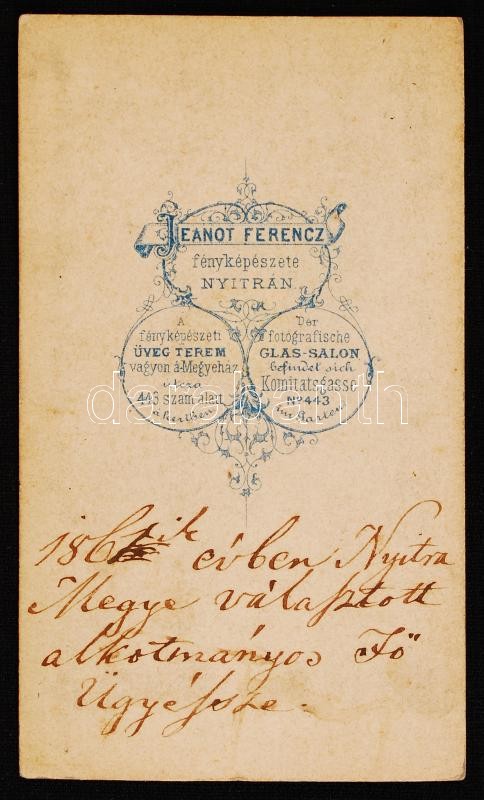 JEANOT FERENCZ
fényképészete
NYITRÁN
A
fényképészeti
ÜVEG TEREM
vagyon á-Megyeház
utcza
443 szam alatt
akertben
Der
fotografische
GLAS-SALON
befindet sich
Komitatsgasse
No 443
im Garten
ik evben Nyitra
Megye választott
alkotmányos Fő
Ügyéssze.